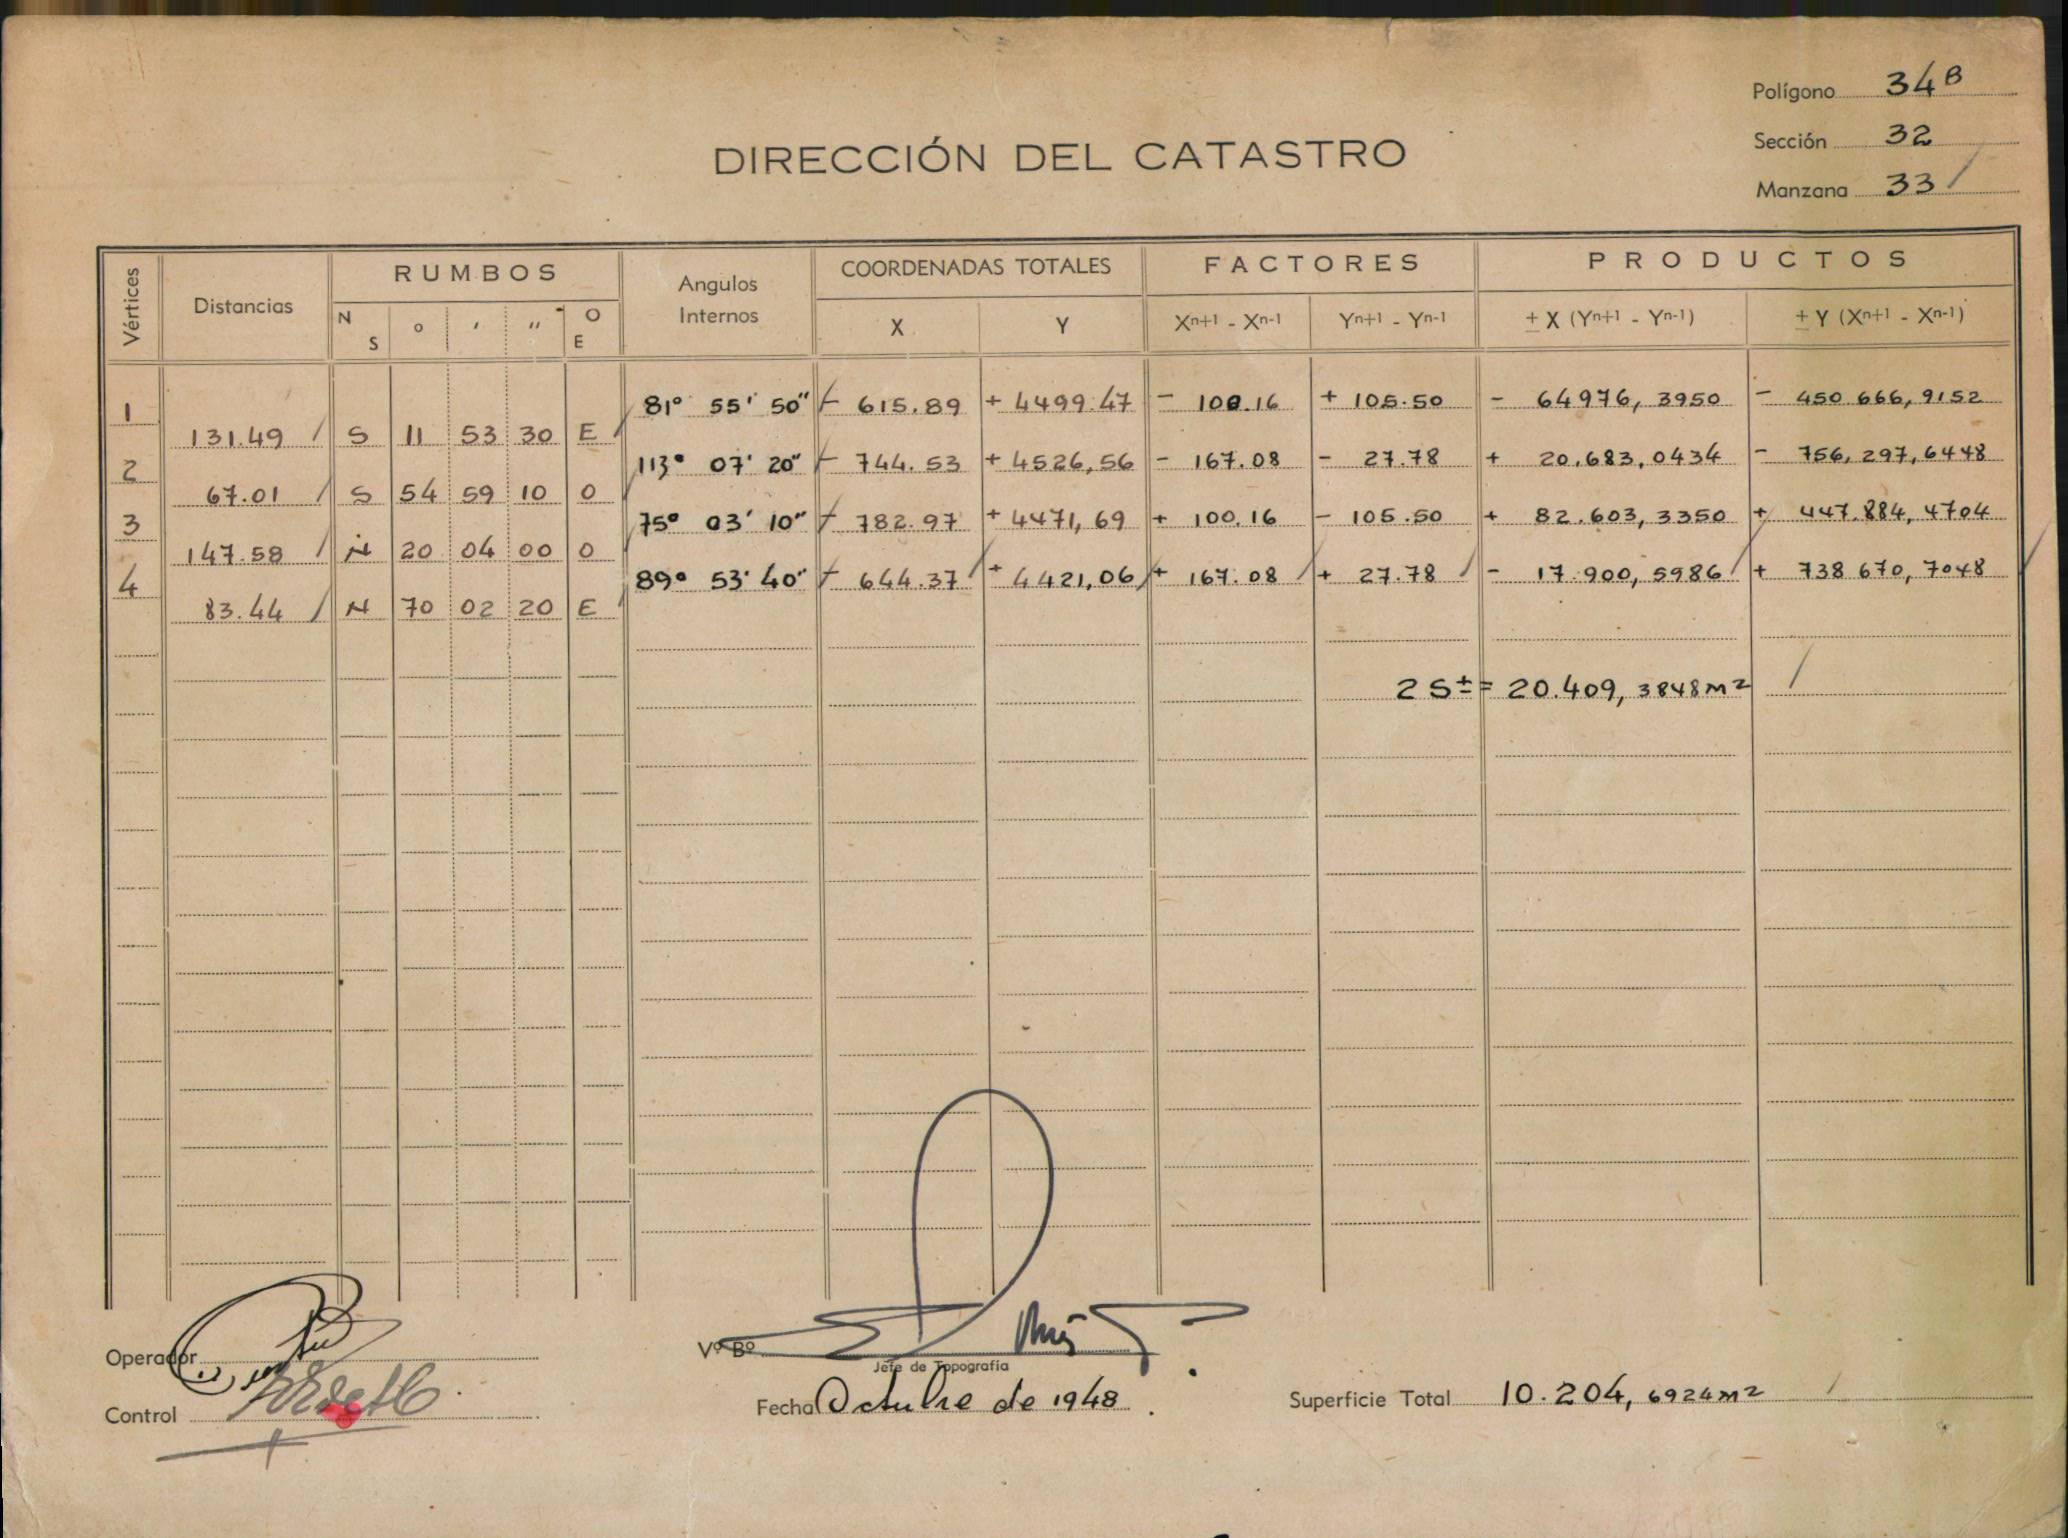 Polígono 34B
DIRECCIÓN DEL CATASTRO
Sección 32
Manzana 33
Vértices Distancias RUMBOS Angulos Internos COORDENADAS TOTALES FACTORES PRODUCTOS
N S o ' '' O E X Y Xn+1 - Xn-1 Yn+1 - Yn-1 ± X (Yn+1 - Yn-1) ± Y (Xn+1 - Xn-1)
1 81° 55' 50" - 615.89 + 4499.47 - 100.16 + 105.50 - 64976, 3950 - 450 666, 9152
131.49 S 11 53 30 E
2 113° 07' 20" - 744.53 + 4526,56 - 167.08 - 27.78 + 20.683,0434 - 756,297,6448
67.01 S 54 59 10 O
3 75° 03' 10" - 782.97 + 4471,69 + 100.16 - 105.50 + 82.603,3350 + 447.884,4704
147.58 N 20 04 00 O
4 89° 53' 40" - 644.37 + 4421,06 + 167.08 + 27.78 - 17.900,5986 + 738 670,7048
83.44 N 70 02 20 E
2 S ± = 20.409, 3848 m2
Operador
Vº Bº
Jefe de Topografía
Control
Fecha Octubre de 1948.
Superficie Total 10.204, 6924 m2